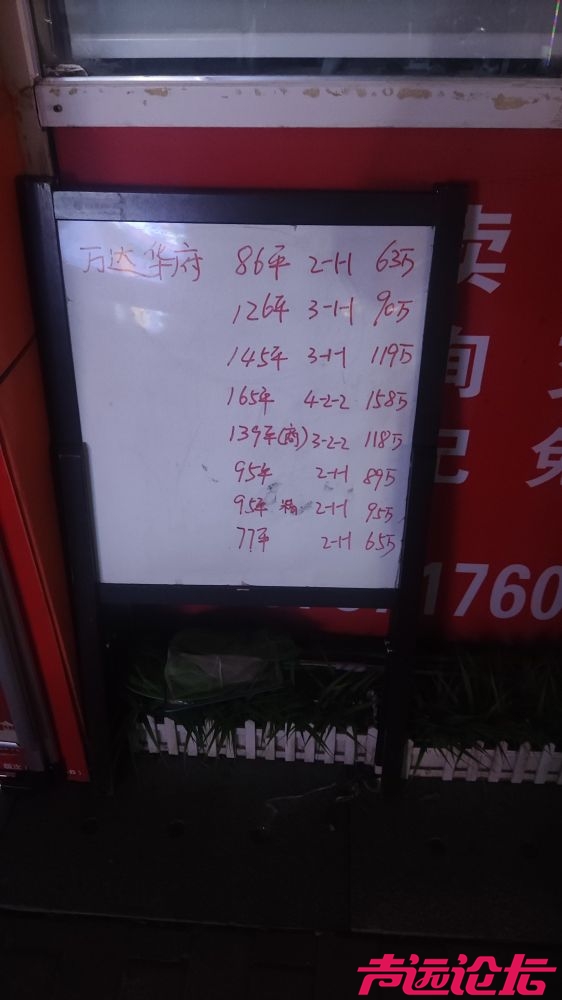 万达华府 86平 2-1-1 63万
126平 3-1-1 90万
145平 3-1-1 119万
165平 4-2-2 158万
139平(商) 3-2-2 118万
95平 2-1-1 89万
95平 精 2-1-1 95万
77平 2-1-1 65万
卖
询
记 免
1760
声远论坛